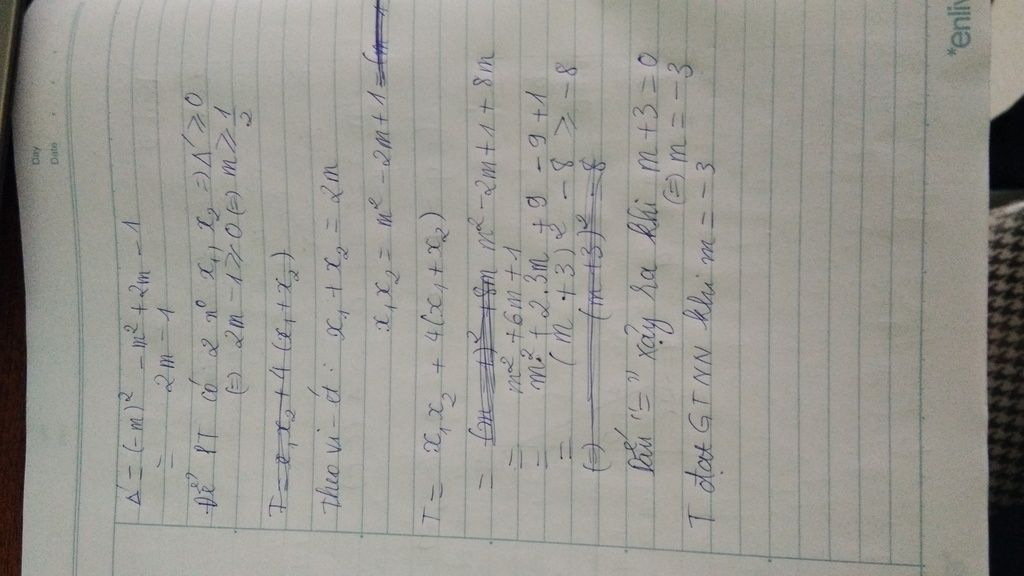 Day
Date
Δ' = (-m)² - m² + 2m - 1
= 2m - 1
Để PT có 2 nº x₁, x₂ => Δ' ≥ 0
(=) 2m - 1 ≥ 0 (=) m ≥ 1/2
T = x₁x₂ + 4(x₁ + x₂)
Theo vi-ét: x₁ + x₂ = 2m
x₁x₂ = m² - 2m + 1 = (m - 1
T = x₁x₂ + 4(x₁ + x₂)
= (m - 1)² + 8m m² - 2m + 1 + 8m
= m² + 6m + 1
= m² + 2.3m + 9 - 9 + 1
= (m + 3)² - 8 ≥ -8
(=) (m + 3)² = 8
Dấu "=" xảy ra khi m + 3 = 0
(=) m = -3
T đạt GTNN khi m = -3
*enliv